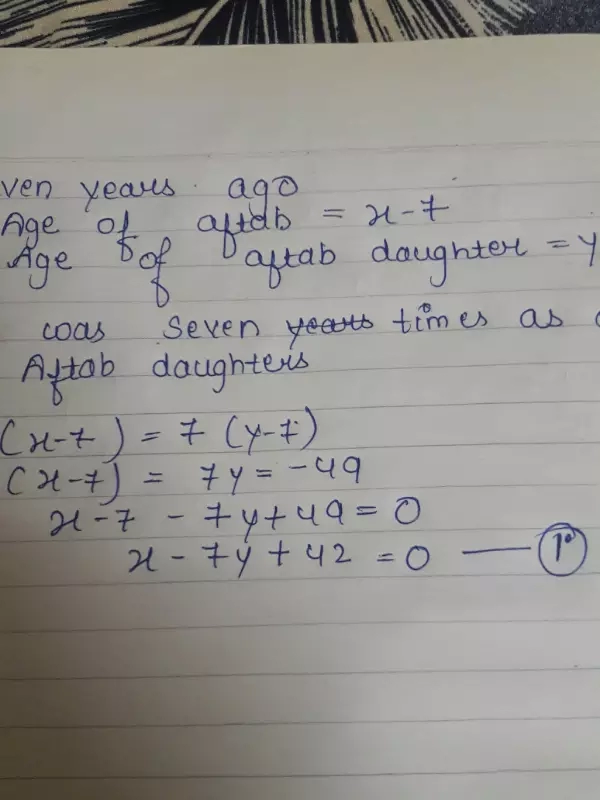 ven years ago
Age of aftab = x-7
Age of aftab daughter = y
was seven years times as
Aftab daughters
(x-7) = 7 (y-7)
(x-7) = 7y = -49
x-7 - 7y+49 = 0
x - 7y + 42 = 0 — 1